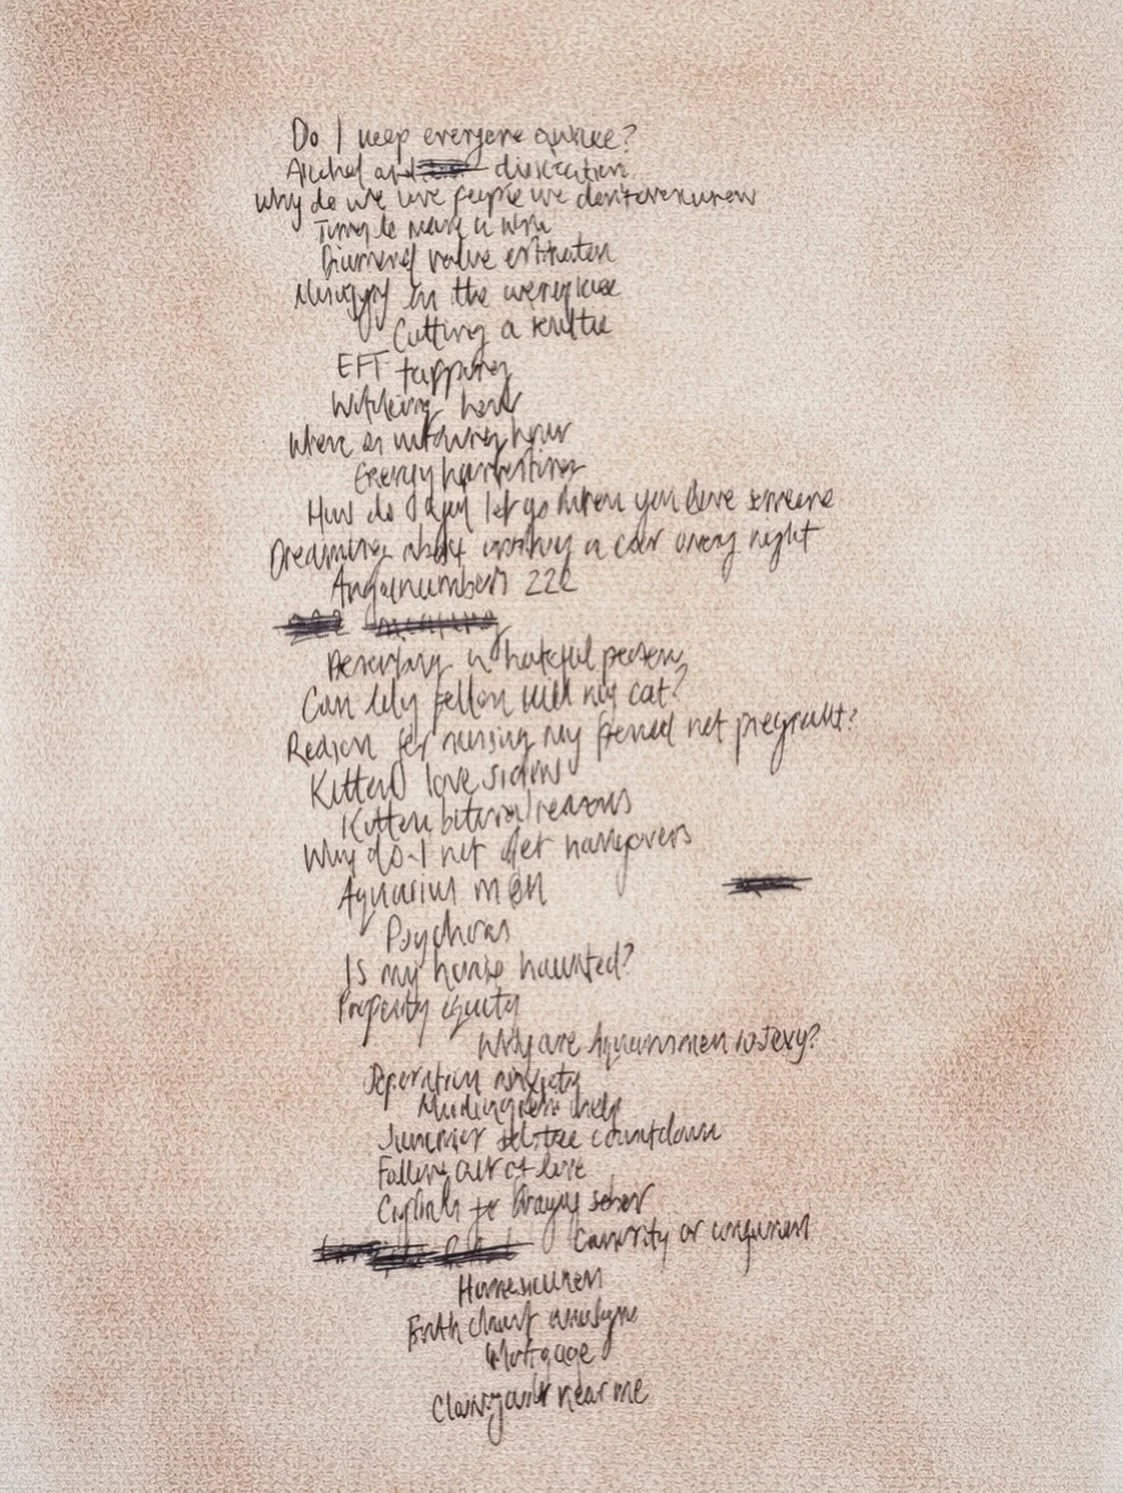 Do I keep everyone awake?
Alcohol and dislocation
Why do we love people we don't even know
Time to make a
Diamond value estimator
Misogyny in the workplace
Cutting a
EFT tapping
Witching hour
When is witching hour
Energy harvesting
How do you let go when you love someone
Dreaming about a car every night
Angel numbers 222
a hateful person
Can lily pollen kill my cat?
Reason for missing my period not pregnant?
Kitten love signs
Kitten biting reasons
Why do I not get hangovers
Aquarius men
Psychosis
Is my house haunted?
Property equity
Why are Aquarius men so sexy?
Separation anxiety
help
Summer solstice countdown
Falling out of love
for
or
Homesickness
Birth chart analysis
Mortgage
Clairvoyant near me